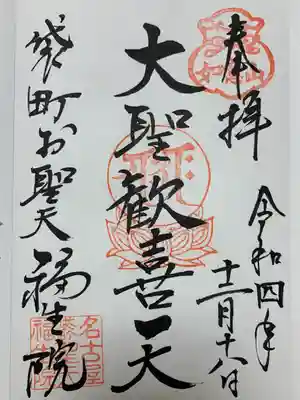 奉拝
令和四年
十二月十八日
大聖歓喜天
袋町お聖天
福生院
名古屋